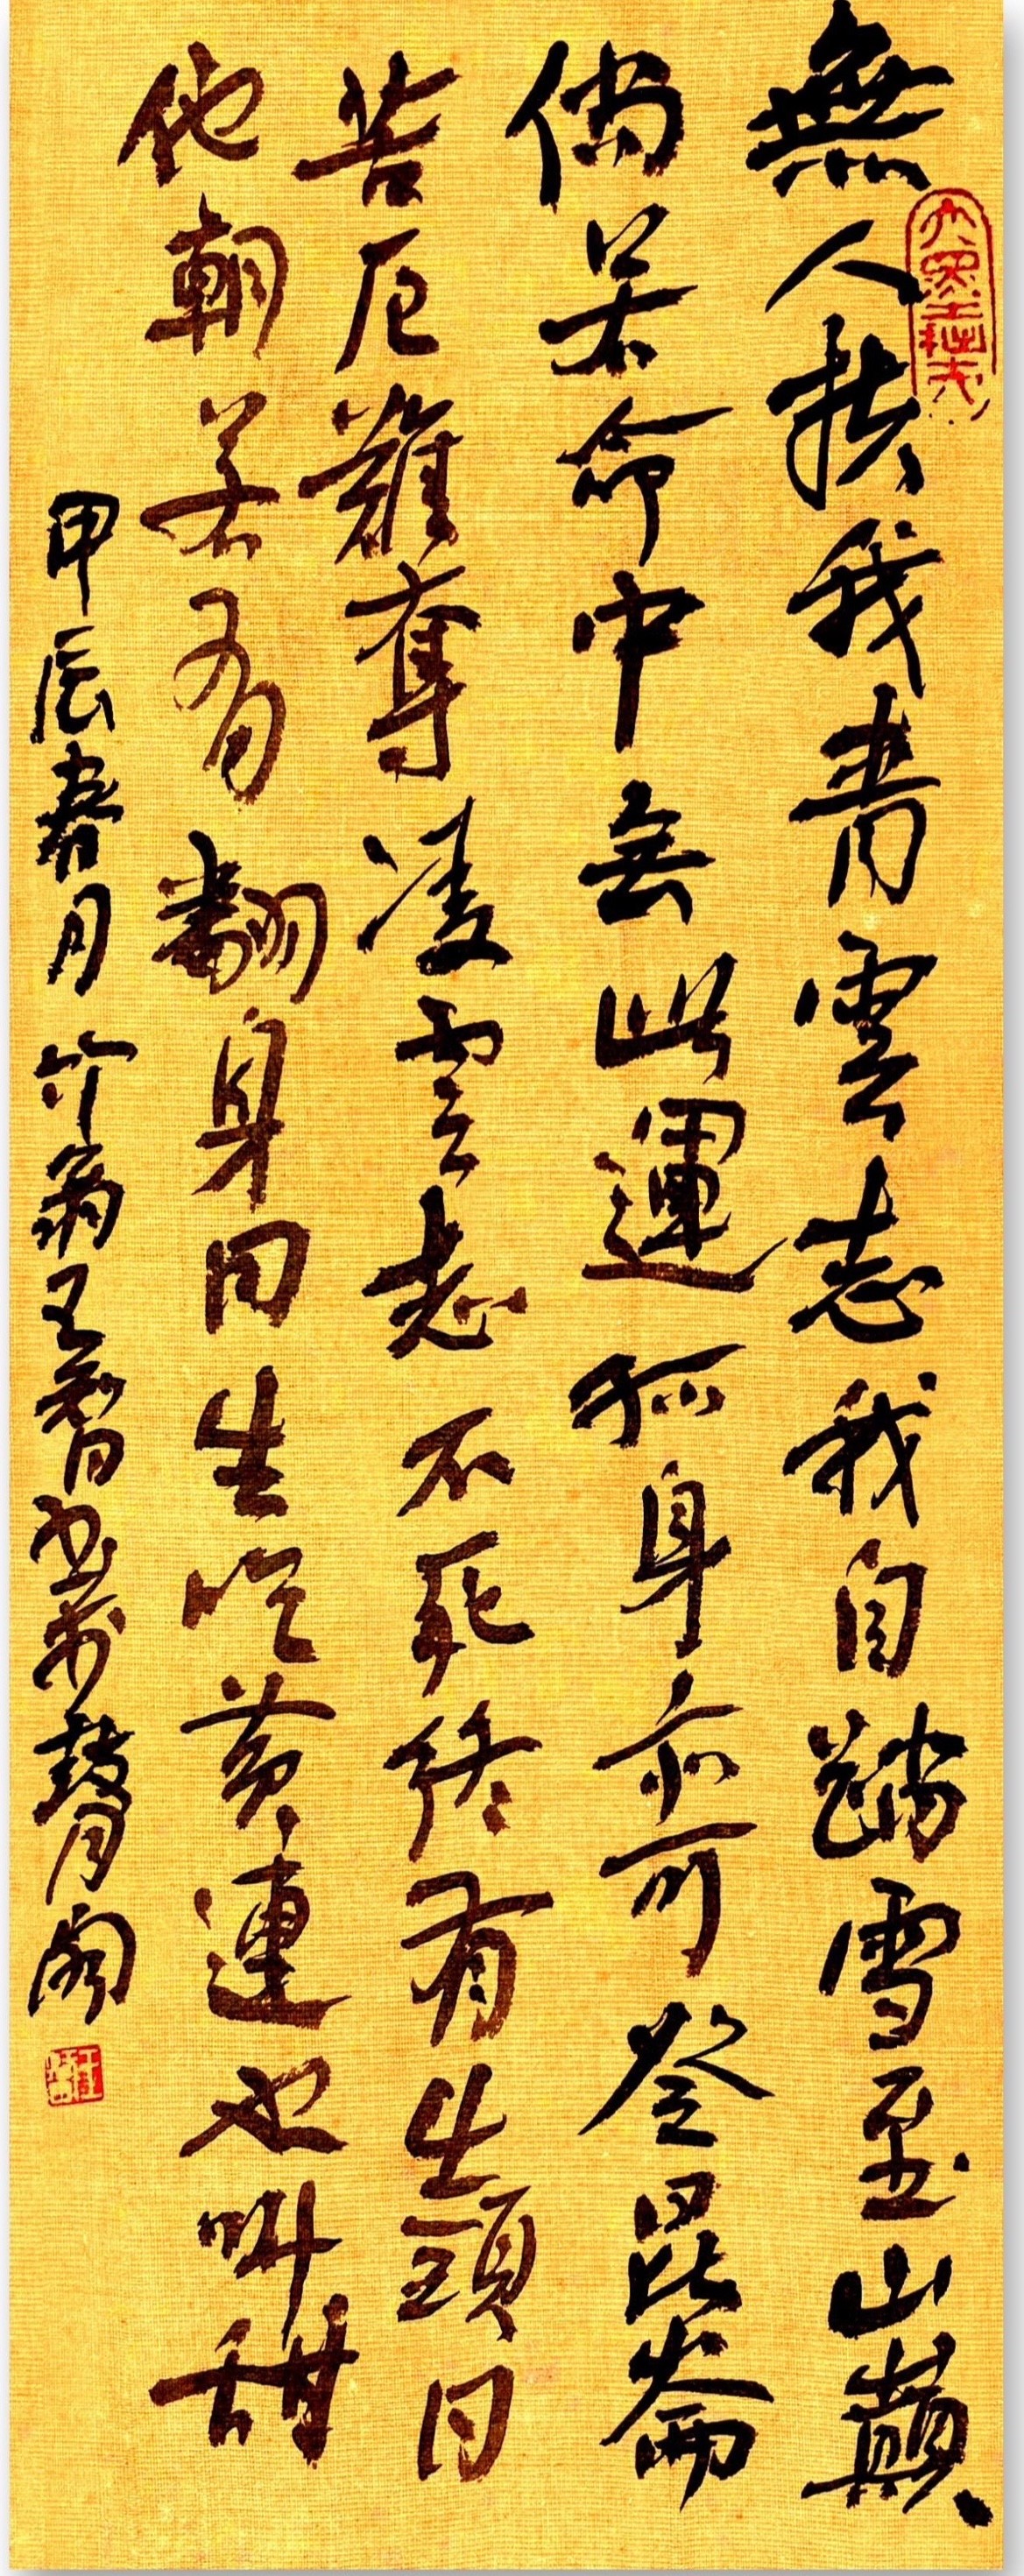 無人扶我青雲志我自踏雪至山巔
倘若命中無此運孤身亦可登昆崙
苦厄難奪凌雲志不死終有出頭日
他朝若有翻身日生吃黄連也叫甜
甲辰春月竹翁王智書於鼓月閣